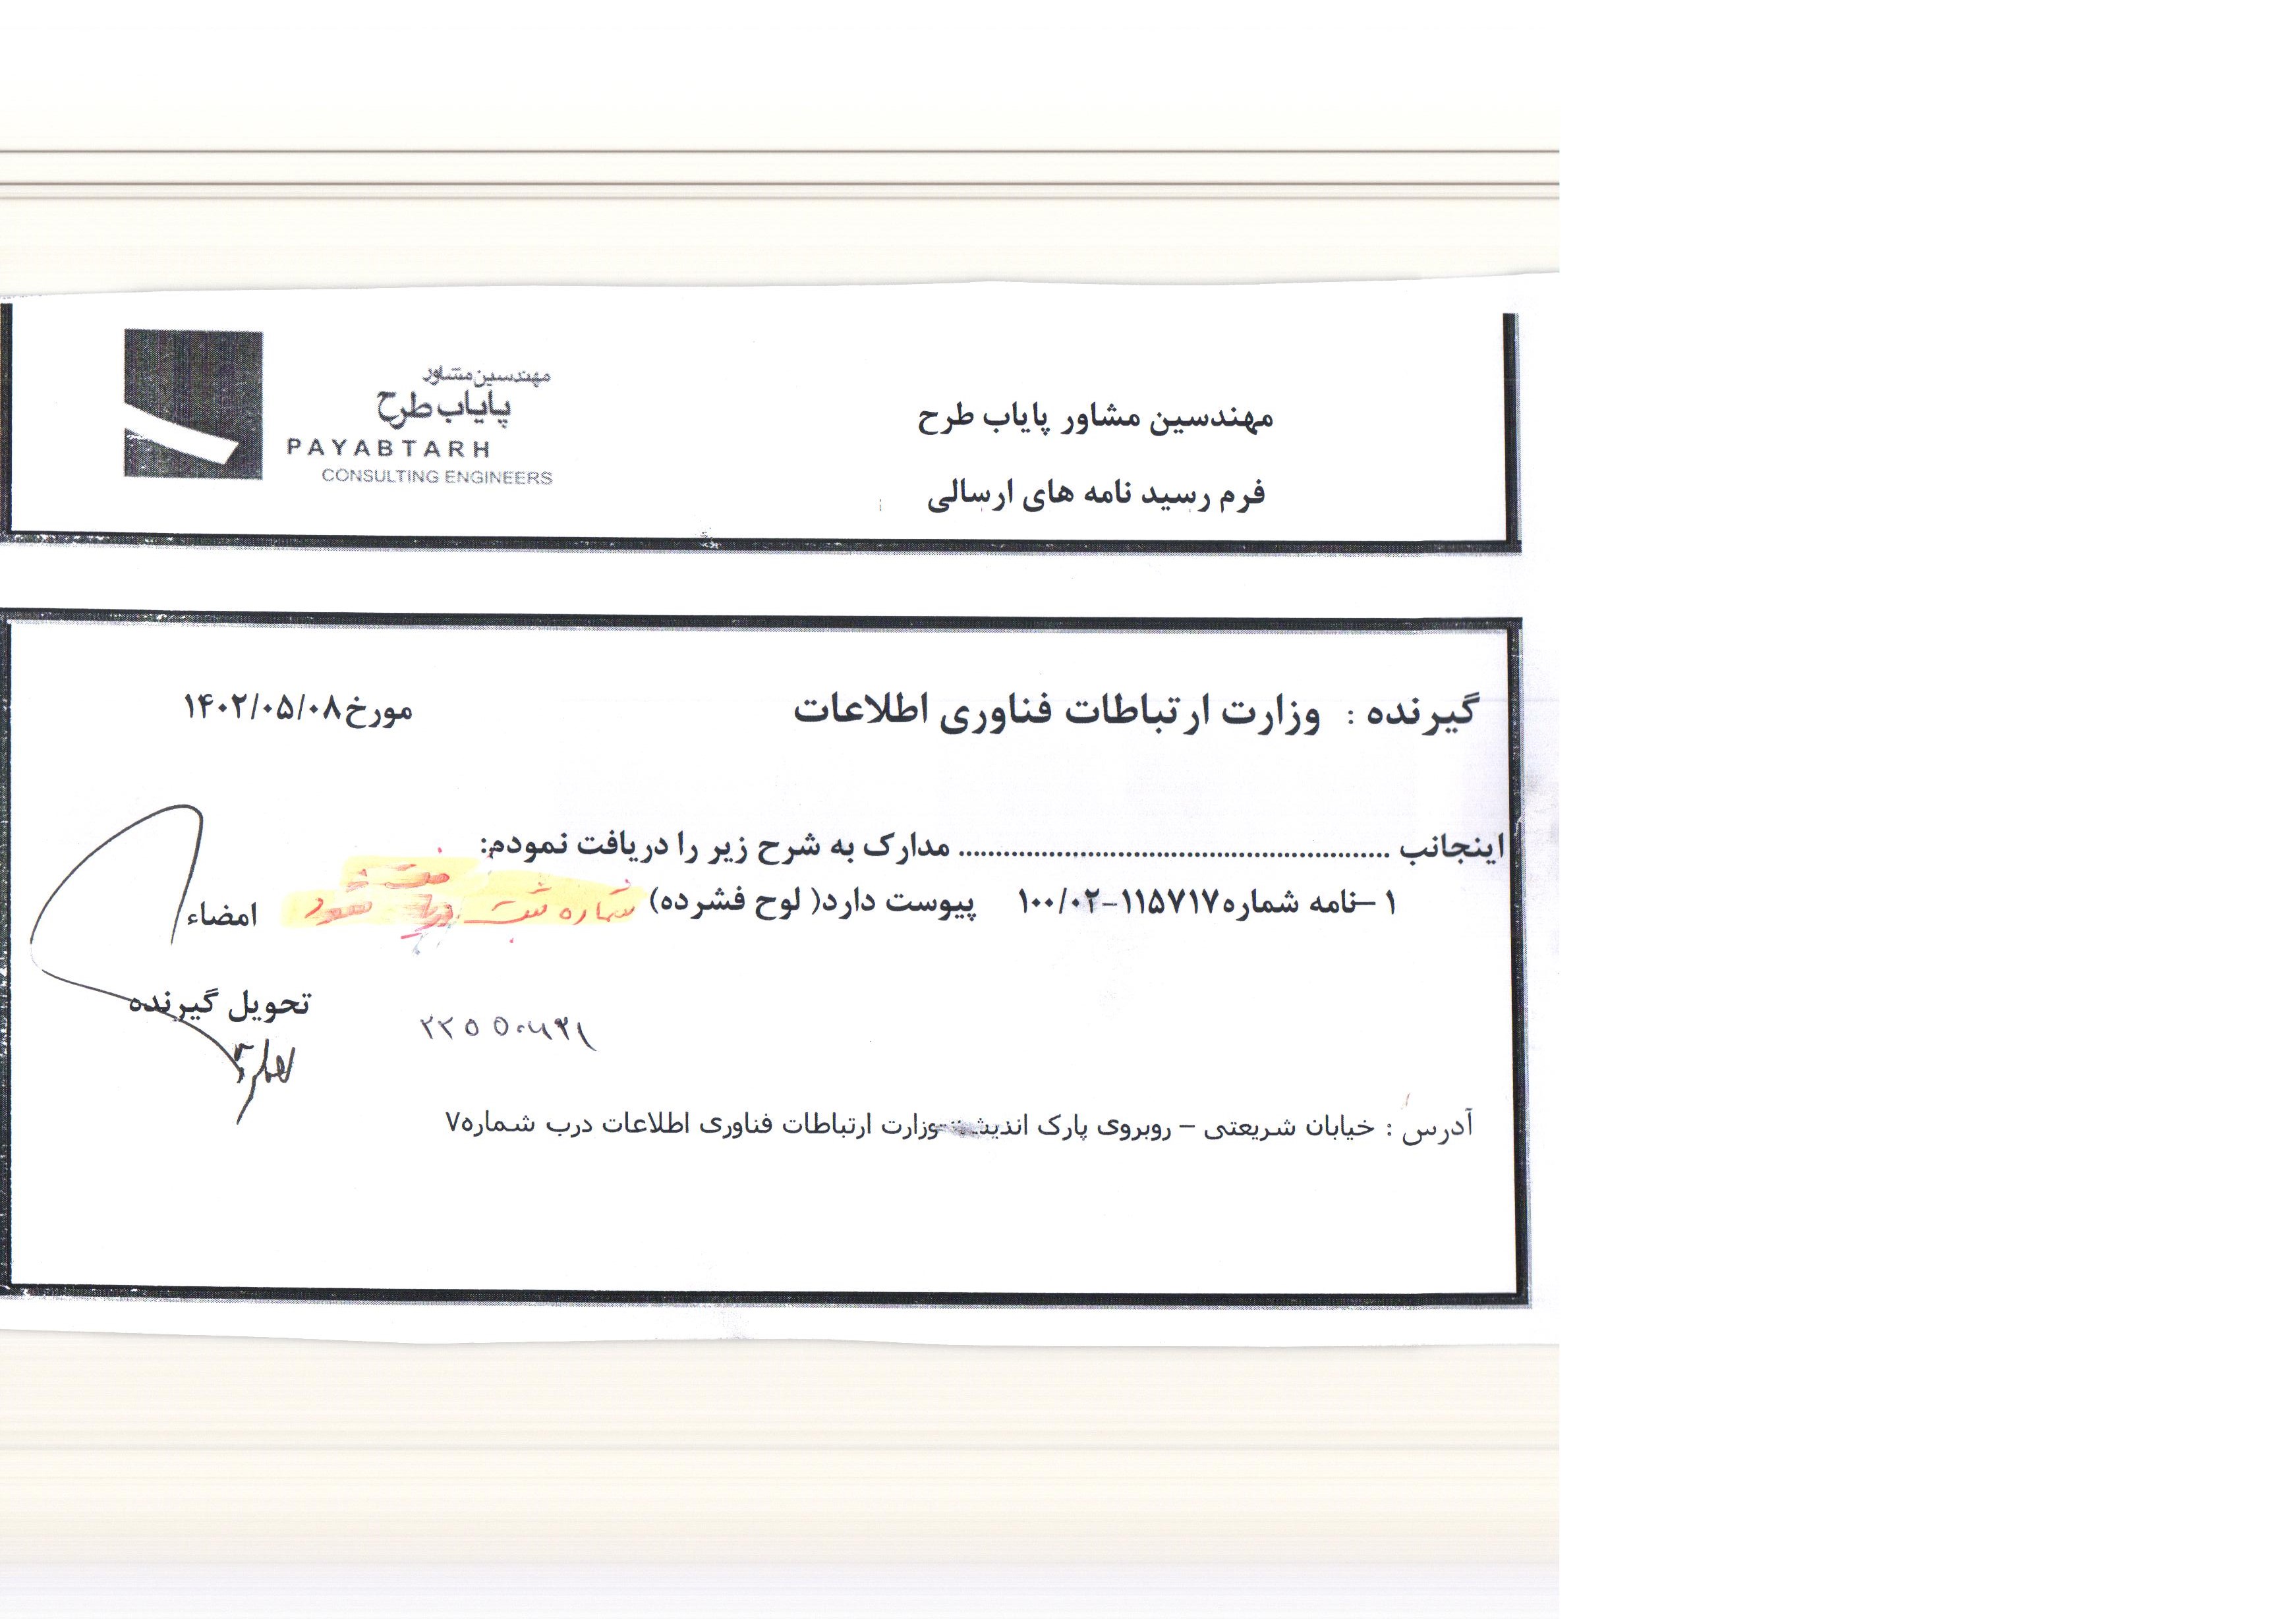 مهندسین مشاور
پایاب طرح
PAYABTARH
CONSULTING ENGINEERS
مهندسین مشاور پایاب طرح
فرم رسید نامه های ارسالی
گیرنده : وزارت ارتباطات فناوری اطلاعات مورخ۱۴۰۲/۰۵/۰۸
اینجانب ........................................................ مدارک به شرح زیر را دریافت نمودم:
۱–نامه شماره۱۱۵۷۱۷-۱۰۰/۰۲ پیوست دارد( لوح فشرده) شماره ثبت شود
امضاء
تحویل گیرنده
آدرس : خیابان شریعتی – روبروی پارک اندیشه-وزارت ارتباطات فناوری اطلاعات درب شماره۷